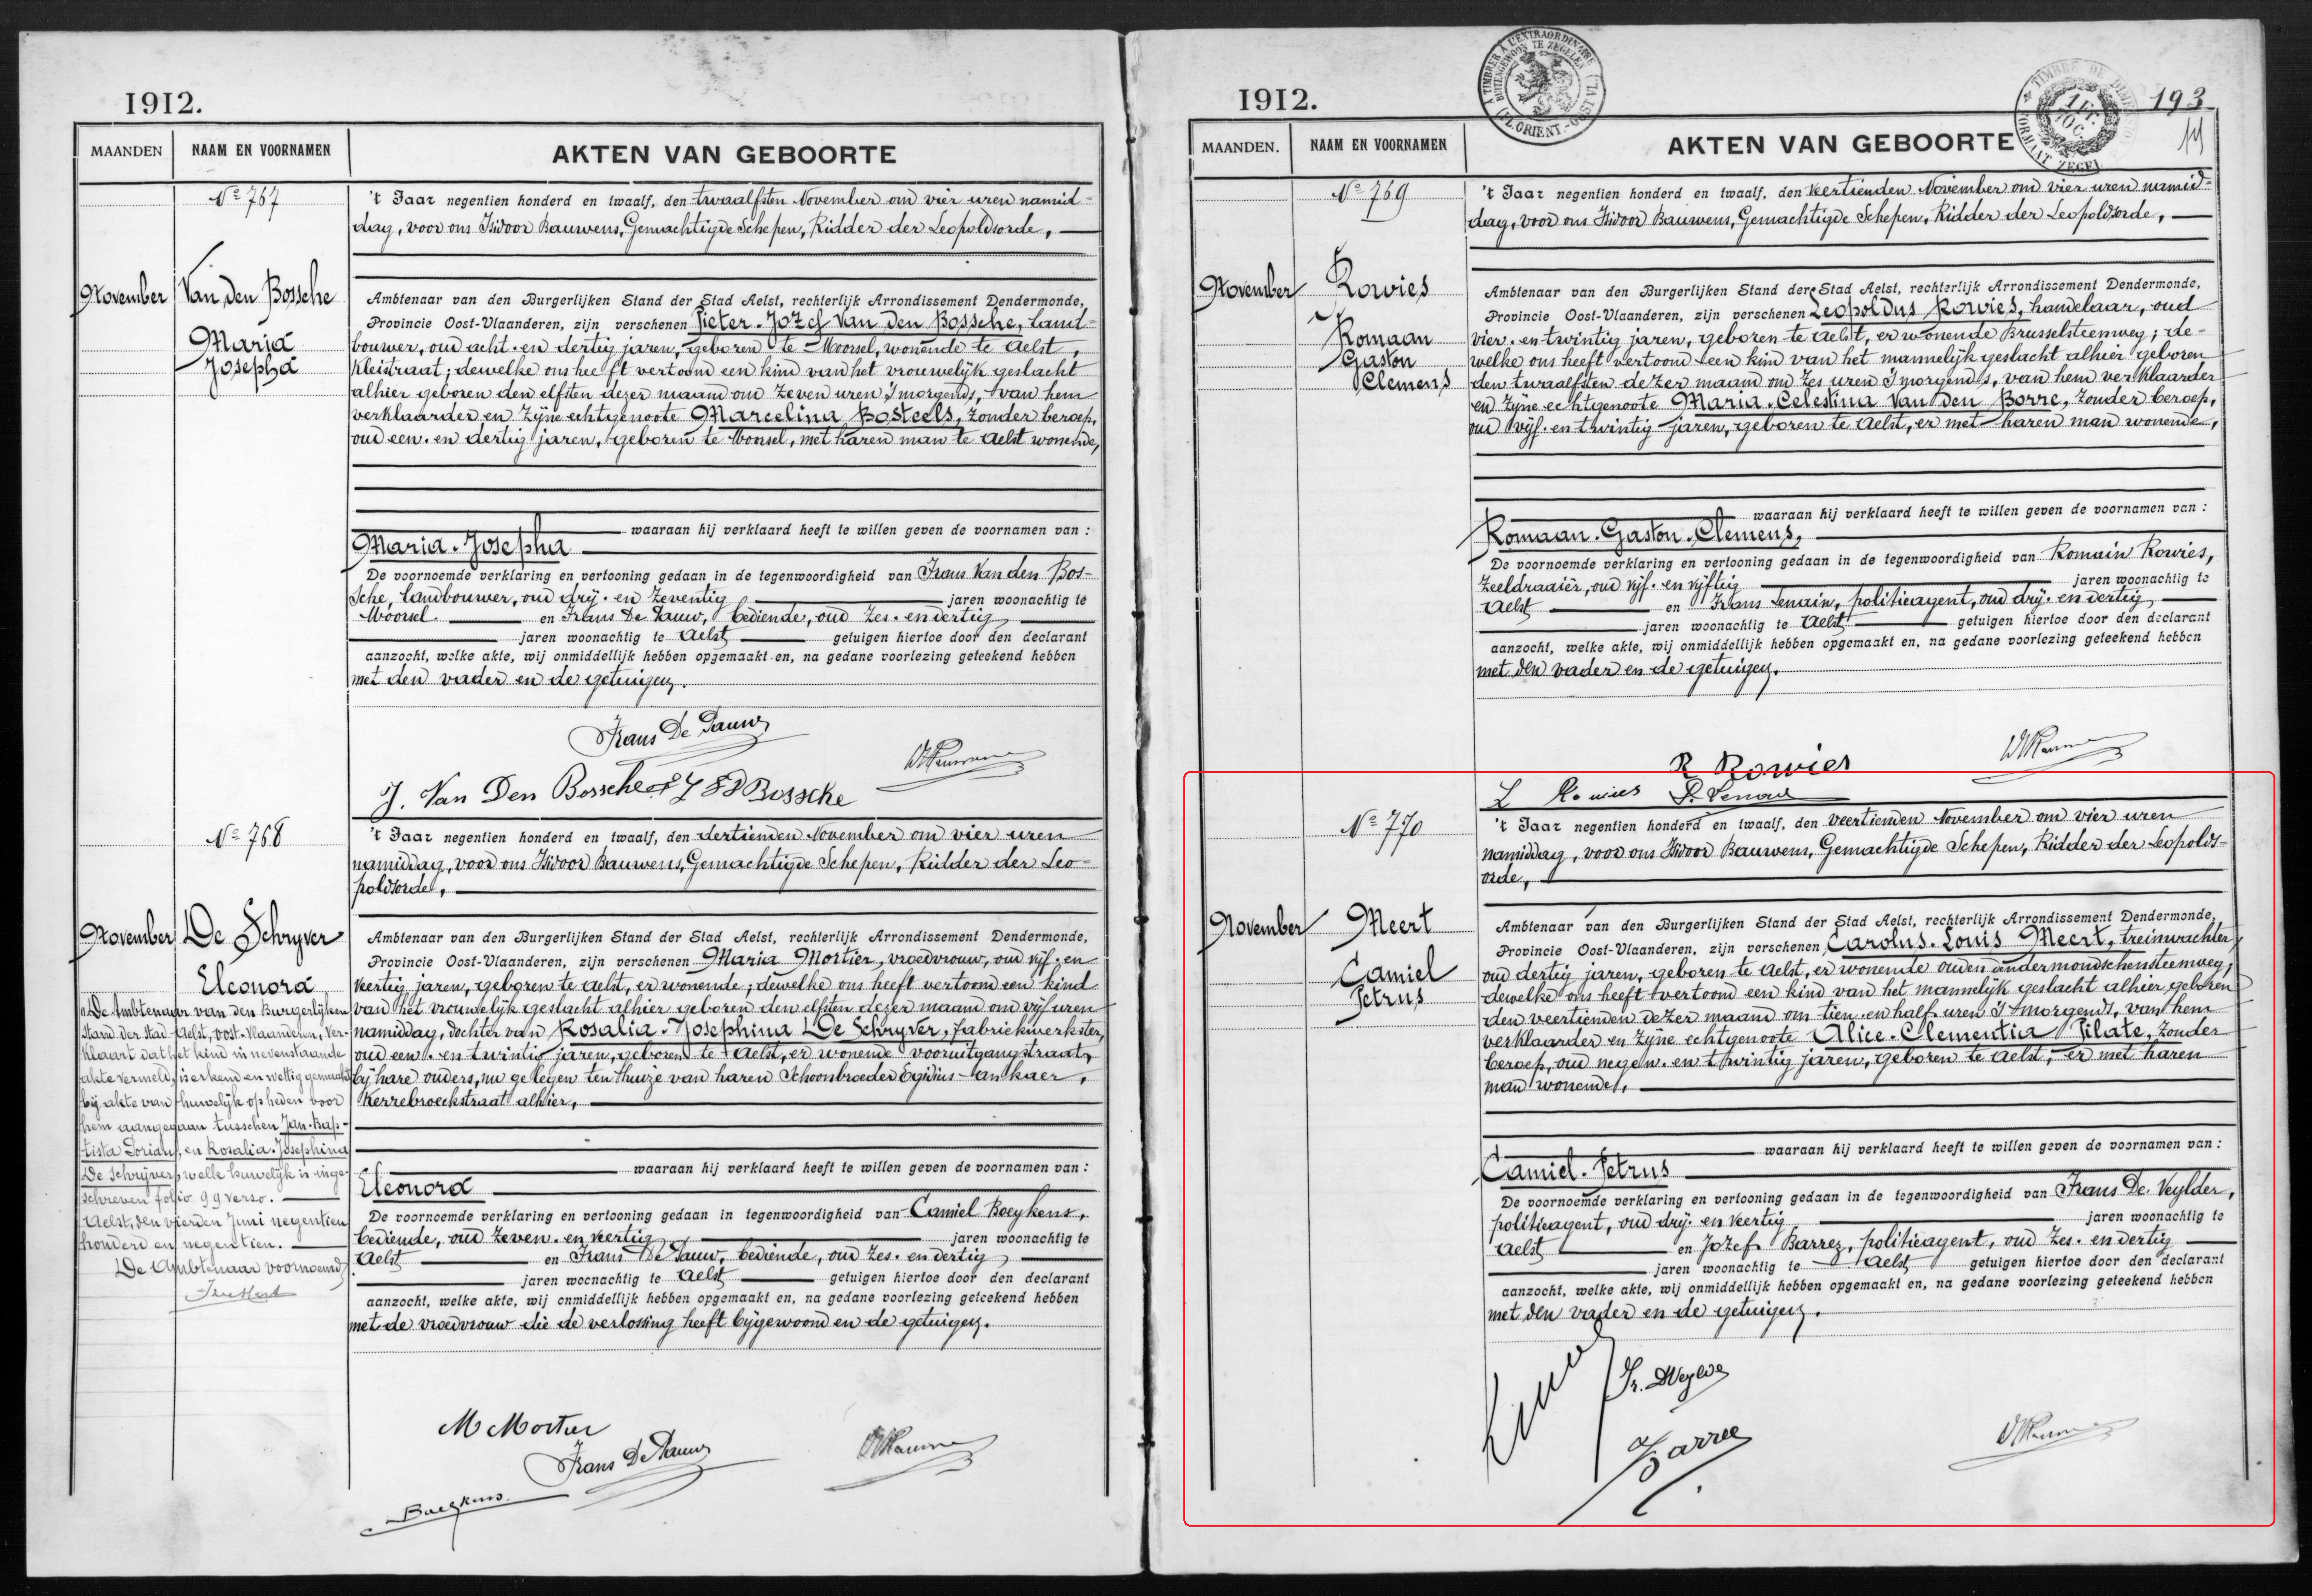 1912.
MAANDEN
NAAM EN VOORNAMEN
AKTEN VAN GEBOORTE
No 767
November
Van den Bossche
Maria
Josepha
't Jaar negentien honderd en twaalf, den twaalfsten November om vier uren namid-
dag, voor ons Isidoor Bauwens, Gemachtigde Schepen, Ridder der Leopoldsorde,
Ambtenaar van den Burgerlijken Stand der Stad Aelst, rechterlijk Arrondissement Dendermonde,
Provincie Oost-Vlaanderen, zijn verschenen Pieter-Jozef Van den Bossche, land-
bouwer, oud acht-en dertig jaren, geboren te Moorsel, wonende te Aelst,
Kleistraat; dewelke ons heeft vertoond een kind van het vrouwelijk geslacht
alhier geboren den elfsten dezer maand om zeven uren 's morgends, van hem
verklaarder en zijne echtgenoote Marcelina Bosteels, zonder beroep,
oud een-en dertig jaren, geboren te Moorsel, met haren man te Aelst wonende,
waaraan hij verklaard heeft te willen geven de voornamen van :
Maria-Josepha
De voornoemde verklaring en vertooning gedaan in de tegenwoordigheid van Frans Van den Bos-
sche, landbouwer, oud drij-en zeventig jaren woonachtig te
Moorsel. en Frans De Pauw, bediende, oud zes-en dertig,
jaren woonachtig te Aelst getuigen hiertoe door den declarant
aanzocht, welke akte, wij onmiddellijk hebben opgemaakt en, na gedane voorlezing geteekend hebben
met den vader en de getuigen.
Frans De Pauw
J. Van Den Bossche
No 768
November
De Schryver
Eleonora
De Ambtenaar van den Burgerlijken
Stand der stad Aelst, Oost-Vlaanderen, ver-
klaart dat het kind in nevenstaande
akte vermeld, is erkend en wettig gemaakt
bij akte van huwelijk op heden voor
hem aangegaan tusschen Jan-Bap-
tista Dorian, en Rosalia-Josephina
De Schrijver, welk huwelijk is inge-
schreven folio 99 verso.
Aelst, den vierden Juni negentien
honderd en negentien.
De Ambtenaar voornoemd,
't Jaar negentien honderd en twaalf, den dertienden November om vier uren
namiddag, voor ons Isidoor Bauwens, Gemachtigde Schepen, Ridder der Leo-
poldsorde,
Ambtenaar van den Burgerlijken Stand der Stad Aelst, rechterlijk Arrondissement Dendermonde,
Provincie Oost-Vlaanderen, zijn verschenen Maria Mortier, vroedvrouw, oud vijf-en
veertig jaren, geboren te Aelst, er wonende; dewelke ons heeft vertoond een kind
van het vrouwelijk geslacht alhier geboren den elfsten dezer maand om vijf uren
namiddag, dochter van Rosalia-Josephina De Schryver, fabriekwerkster,
oud een-en twintig jaren, geboren te Aelst, er wonende vooruitgangstraat,
bij hare ouders, nu gelegen ten huize van haren Schoonbroeder Egidius
Kerrebroeckstraat alhier,
waaraan hij verklaard heeft te willen geven de voornamen van :
Eleonora
De voornoemde verklaring en vertooning gedaan in tegenwoordigheid van Camiel Boeykens,
bediende, oud zeven-en veertig jaren woonachtig te
Aelst en Frans De Pauw, bediende, oud zes-en dertig,
jaren woonachtig te Aelst getuigen hiertoe door den declarant
aanzocht, welke akte, wij onmiddellijk hebben opgemaakt en, na gedane voorlezing geteekend hebben
met de vroedvrouw die de verlossing heeft bijgewoond en de getuigen.
M Mortier
Frans De Pauw
Boeykens
1912.
193
MAANDEN.
NAAM EN VOORNAMEN
AKTEN VAN GEBOORTE
No 769
November
Rowies
Romaan
Gaston
Clemens
't Jaar negentien honderd en twaalf, den veertienden November om vier uren namid-
dag, voor ons Isidoor Bauwens, Gemachtigde Schepen, Ridder der Leopoldsorde,
Ambtenaar van den Burgerlijken Stand der Stad Aelst, rechterlijk Arrondissement Dendermonde,
Provincie Oost-Vlaanderen, zijn verschenen Leopoldus Rowies, handelaar, oud
vier-en twintig jaren, geboren te Aelst, er wonende Brusselsteenweg; de-
welke ons heeft vertoond een kind van het mannelijk geslacht alhier geboren
den twaalfsten dezer maand om zes uren 's morgends, van hem verklaarder
en zijne echtgenoote Maria-Celestina Van den Borre, zonder beroep,
oud vijf-en twintig jaren, geboren te Aelst, er met haren man wonende,
waaraan hij verklaard heeft te willen geven de voornamen van :
Romaan-Gaston-Clemens,
De voornoemde verklaring en vertooning gedaan in de tegenwoordigheid van Romain Rowies,
zeeldraaier, oud vijf-en vijftig jaren woonachtig te
Aelst en Frans Lenain, politieagent, oud drij-en dertig,
jaren woonachtig te Aelst getuigen hiertoe door den declarant
aanzocht, welke akte, wij onmiddellijk hebben opgemaakt en, na gedane voorlezing geteekend hebben
met den vader en de getuigen.
R Rowies
L Rowies
No 770
November
Meert
Camiel
Petrus
't Jaar negentien honderd en twaalf, den veertienden November om vier uren
namiddag, voor ons Isidoor Bauwens, Gemachtigde Schepen, Ridder der Leopolds-
orde,
Ambtenaar van den Burgerlijken Stand der Stad Aelst, rechterlijk Arrondissement Dendermonde,
Provincie Oost-Vlaanderen, zijn verschenen Carolus-Louis Meert, treinwachter
oud dertig jaren, geboren te Aelst, er wonende ouden dendermondschensteenweg,
dewelke ons heeft vertoond een kind van het mannelijk geslacht alhier geboren
den veertienden dezer maand om tien en half uren 's morgends, van hem
verklaarder en zijne echtgenoote Alice-Clementia Pilate, zonder
beroep, oud negen-en twintig jaren, geboren te Aelst, er met haren
man wonende,
waaraan hij verklaard heeft te willen geven de voornamen van :
Camiel-Petrus
De voornoemde verklaring en vertooning gedaan in de tegenwoordigheid van Frans De Veylder,
politieagent, oud drij-en veertig jaren woonachtig te
Aelst en Jozef Barrez, politieagent, oud zes-en dertig
jaren woonachtig te Aelst getuigen hiertoe door den declarant
aanzocht, welke akte, wij onmiddellijk hebben opgemaakt en, na gedane voorlezing geteekend hebben
met den vader en de getuigen.